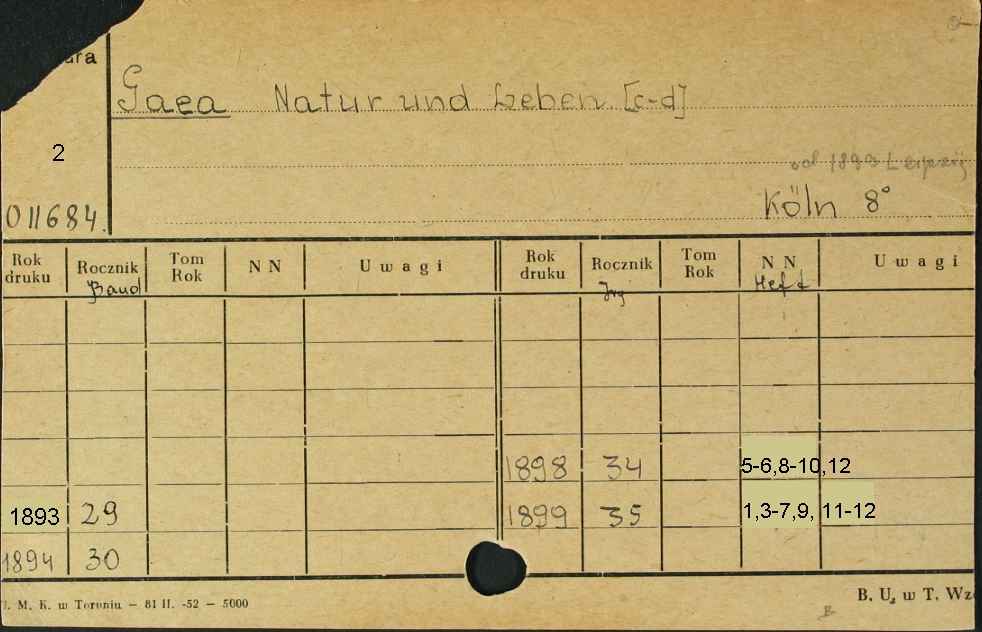 Gaea Natur und Leben [c-d]
2
od 1893 Leipzig
011684. Köln 8°
Rok druku Rocznik Tom Rok N N Uwagi Rok druku Rocznik Tom Rok N N Uwagi
Band Jrg Heft
1898 34 5-6,8-10,12
1893 29 1899 35 1,3-7,9, 11-12
1894 30
M. K. w Toruniu — 81 II. -52 — 5000 B. U. w T.